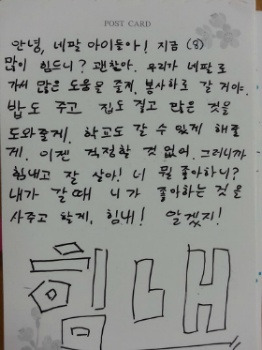 POST CARD
안녕, 네팔 아이들아! 지금 (8)
많이 힘드니? 괜찮아. 우리가 네팔로
가서 많은 도움을 줄게. 봉사하로 갈 거야.
밥도 주고 집도 짓고 많은 것을
도와줄게. 학교도 갈 수 있게 해줄
게. 이젠 걱정할 것 없어. 그러니까
힘내고 잘 살아! 너 뭘 좋아하니?
내가 갈때 니가 좋아하는 것을
사주고 할게. 힘내! 알겠지!
힘내